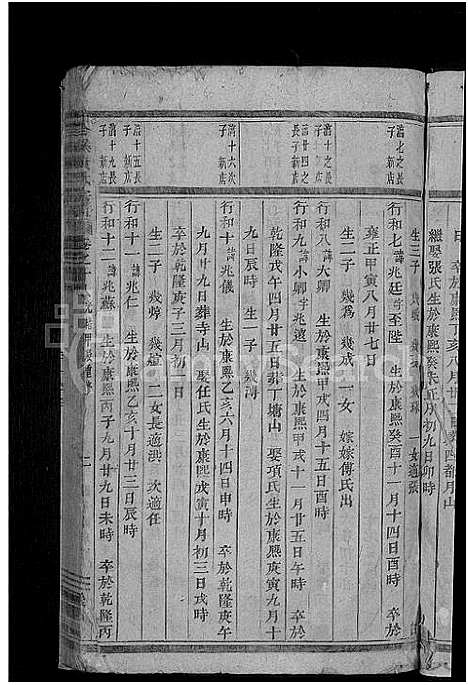 日　卒於乾隆丁亥八月廿
繼娶張氏生於康熙癸亥正月初九日卯時
浩七之長
子　新店
行和七諱兆廷字至陛　生於康熙癸酉十一月十四日酉時　卒於
雍正甲寅八月廿七日
浩十之長
子　新店
行和八諱大卿　生於康熙甲戌四月十五日酉時
生二子　幾為　幾成　一女　嫁嫁傅氏出
浩廿四之
長子新店
行和九諱小卿字兆遠　生於康熙甲戌十一月廿五日午時　卒於
乾隆戊午四月廿五日葬丁塘山　娶項氏生於康熙庚寅九月十
九日辰時　生一子　幾海
浩十六次
子　新店
行和十諱兆儀　生於康熙乙亥六月十四日申時　卒於乾隆庚午
九月廿九日葬寺山　娶任氏生於康熙戊寅十月初三日戌時
卒於乾隆庚子三月初一日
生二子　幾焞　幾煊　二女長適洪　次適任
浩十五長
子　新店
行和十一諱兆仁　生於康熙乙亥十月廿三日辰時
浩十九長
子　新店
行和十二諱兆蘇　生於康熙丙子九月廿九日未時　卒於乾隆丙